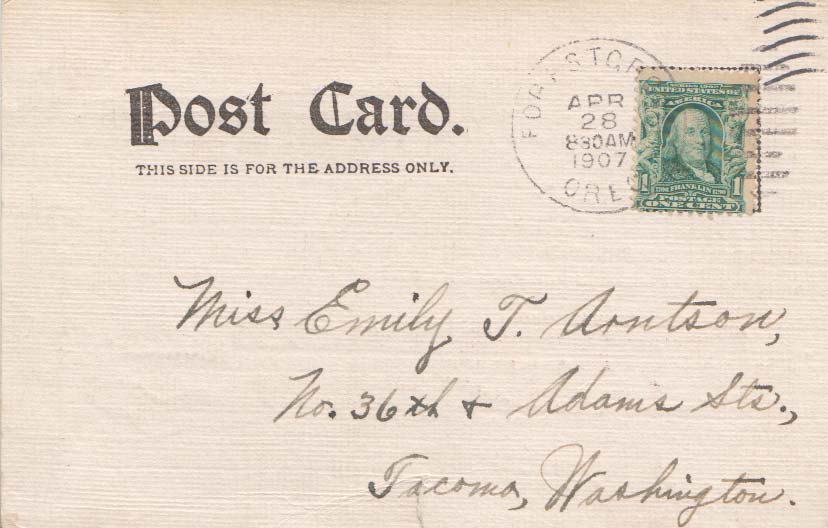 Post Card.
THIS SIDE IS FOR THE ADDRESS ONLY.
APR
28
830AM
1907
ORE
UNITED STATES OF
AMERICA
1 FRANKLIN 1
POSTAGE
ONE CENT
Miss Emily T. Arntson,
No. 36th & Adams Sts.,
Tacoma, Washington.